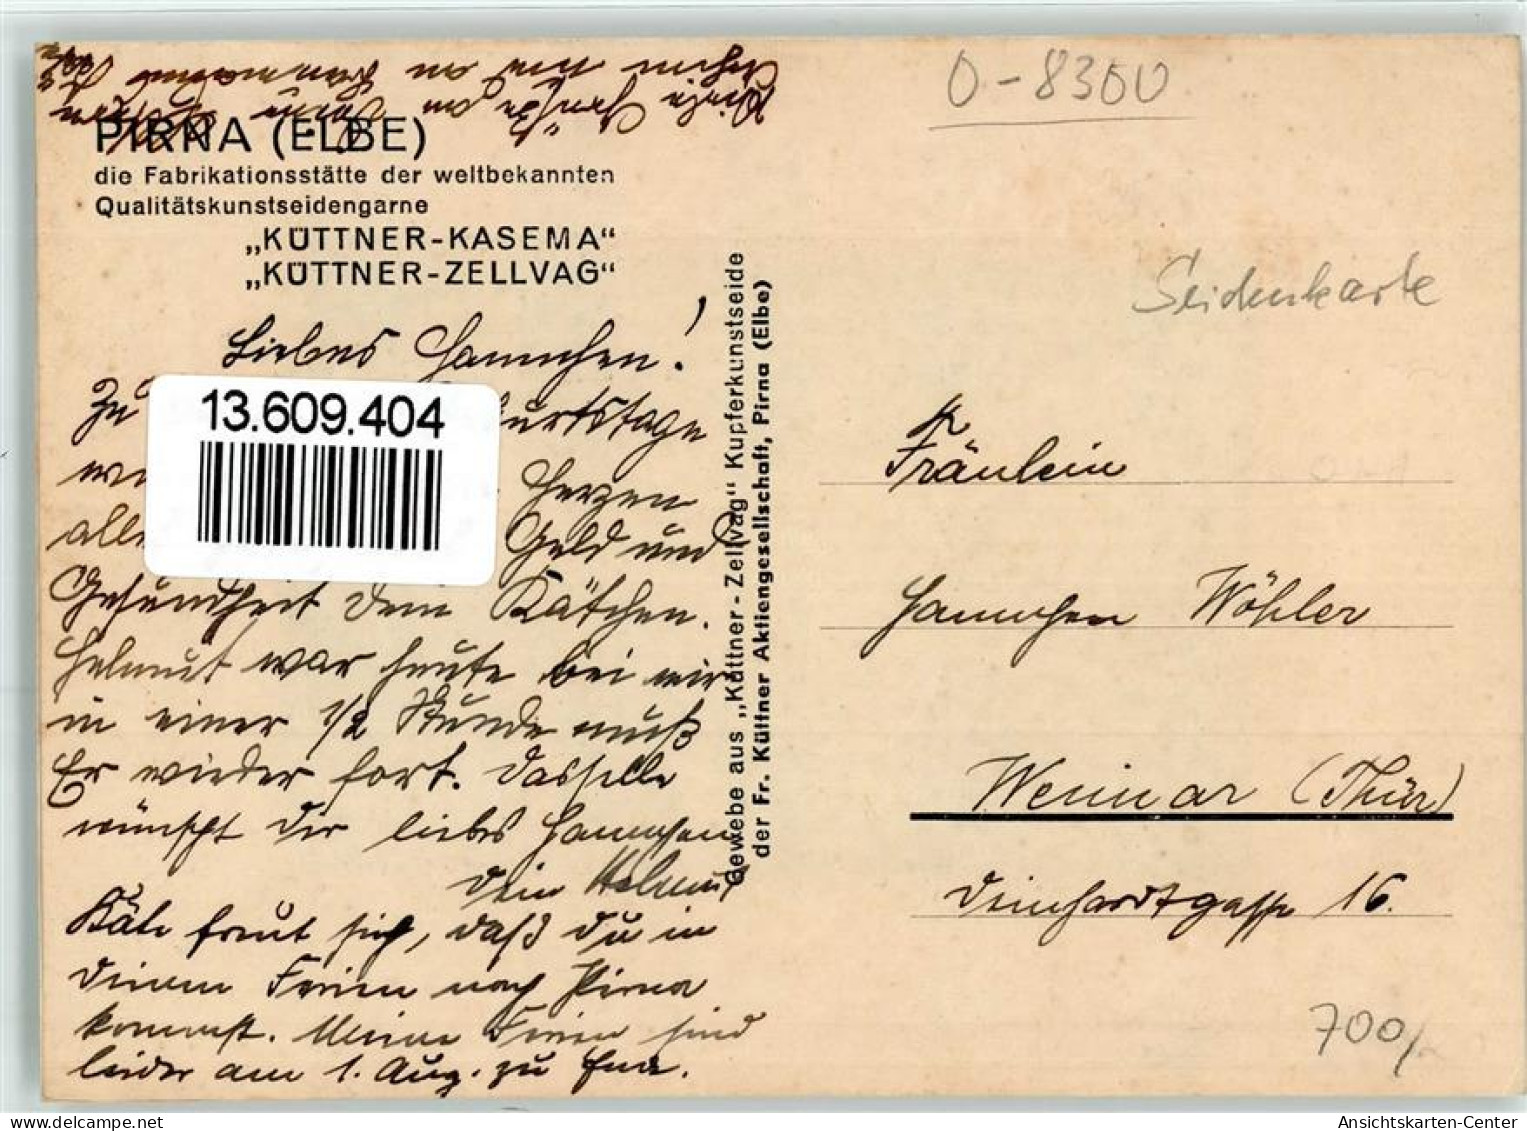 Viele Grüße an Deine
nur an
PIRNA (ELBE)
die Fabrikationsstätte der weltbekannten
Qualitätskunstseidengarne
„KÜTTNER-KASEMA“
„KÜTTNER-ZELLVAG“
Liebes Hannchen!
Zu
13.609.404
urtstage
Herzen
alle Geld und
Gesundheit Dein Kätchen.
Helmut war heute bei mir
in einer 1/2 Stunde muß
Er wieder fort. Dasselbe
wünscht Dir liebes Hannchen
Dein Helmut
Käte freut sich, daß du in
deinen Ferien nach Pirna
kommst. Meine Ferien sind
leider am 1. Aug. zu Ende.
Gewebe aus „Küttner-Zellvag“ Kupferkunstseide
der Fr. Küttner Aktiengesellschaft, Pirna (Elbe)
0-8300
Seidenkarte
Fräulein
Hannchen Wöhler
Weimar (Thür)
Deinhardtgasse 16.
700/
Ansichtskarten-Center